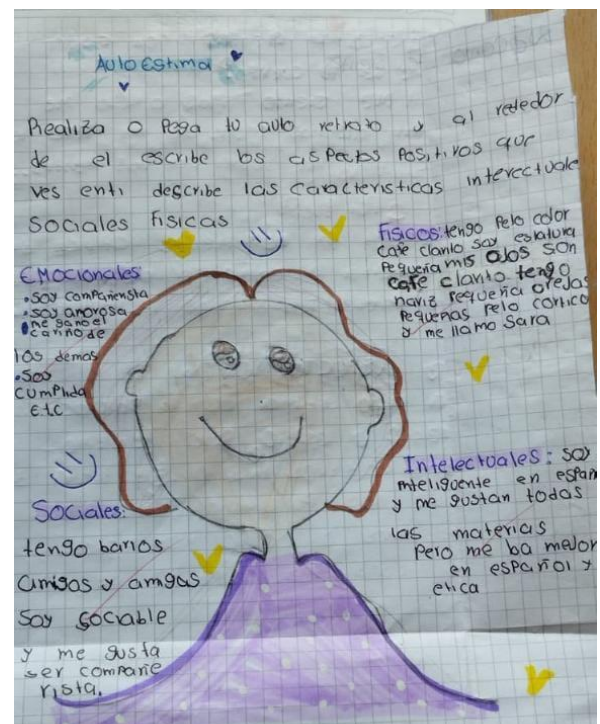 Auto Estima
Realiza o Pega tu auto retrato y al rededor
de el escribe los aspectos Positivos que
ves enti describe las caracteristicas intevectuale
Sociales fisicas
Fisicos: tengo Pelo color
cafe clanto soy estatura
Pequeña mis ojos son
cafe clanto tengo
nariz pequeña orejas
Pequeñas pelo cortico
y me llamo Sara
Emocionales
• Soy compañerista
• soy amorosa
• me gano el
cariño de
los demas
• Soy
cumplida
Etc
Intelectuales: soy
inteligente en españ
y me gustan todas
las materias
Pero me ba mejor
en español y
etica
Sociales:
tengo barios
amigos y amigas
Soy sociable
y me gusta
ser compañe
rista.